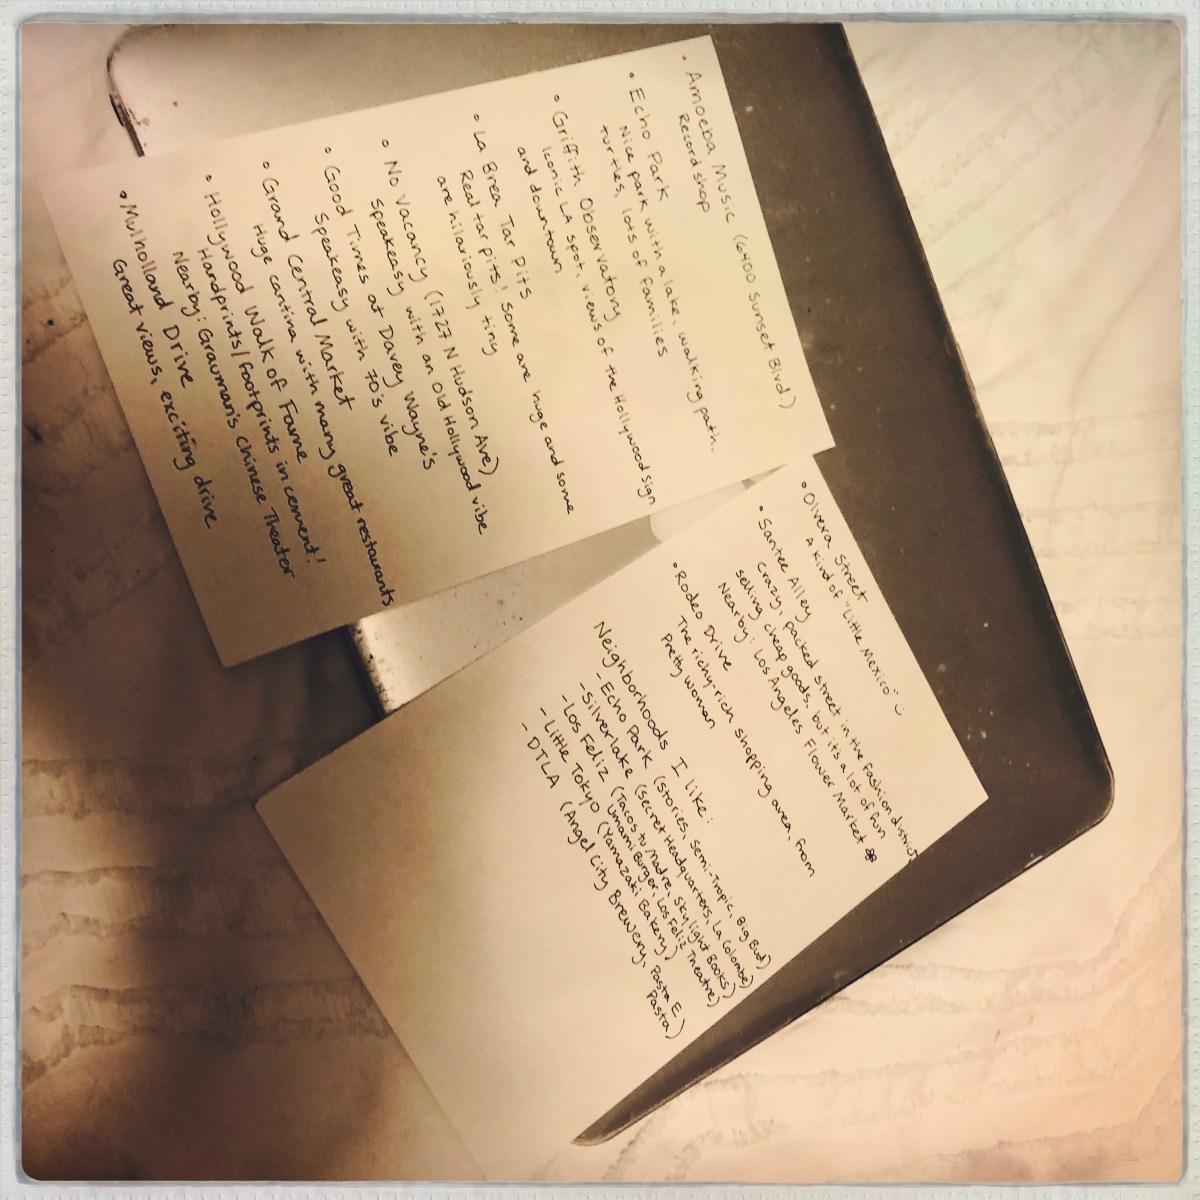 • Amoeba Music (6400 Sunset Blvd.)
Record shop
• Echo Park
Nice park with a lake, walking path,
turtles, lots of families
• Griffith Observatory
Iconic LA spot, views of the Hollywood sign
and downtown
• La Brea Tar Pits
Real tar pits! Some are huge and some
are hilariously tiny
• No Vacancy (1727 N Hudson Ave)
Speakeasy with an old Hollywood vibe
• Good Times at Davey Wayne's
Speakeasy with 70's vibe
• Grand Central Market
Huge cantina with many great restaurants
• Hollywood Walk of Fame
Handprints/footprints in cement!
Nearby: Grauman's Chinese Theater
• Mulholland Drive
Great views, exciting drive
• Olvera Street
A kind of "Little Mexico" :)
• Santee Alley
Crazy, packed street in the fashion district
selling cheap goods, but it's a lot of fun
Nearby: Los Angeles Flower Market
• Rodeo Drive
The richy-rich shopping area, from
Pretty Woman
Neighborhoods I like:
- Echo Park (stories, semi-Tropic, Big Bud)
- Silverlake (secret Headquarters, La Colombe)
- Los Feliz (Tacos tu Madre, Skylight Books)
Umami Burger, Los Feliz Theatre)
- Little Tokyo (Yamazaki Bakery)
- DTLA (Angel City Brewery, Pasta E
Pasta)